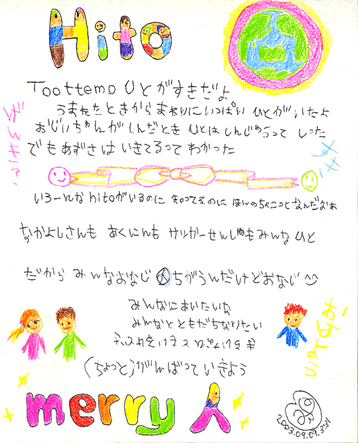 Hito
Toottemo ひとがすきだよ
うまれたときからまわりにいっぱい ひとがいたよ
おじいちゃんがしんだとき ひとはしんじゃうって しった
でもあずさはいきてるってわかった
いろーんなhitoがいるのに しってるのに ほんのちょこっとなんだなぁ
なかよしさんも あくにんも サッカーせんしゅもみんな ひと
だから みんなおなじ ちがうんだけどおなじ
みんなにあいたいな
みんなとともだちなりたい
(ちょっと)がんばっていきよう
merry 人